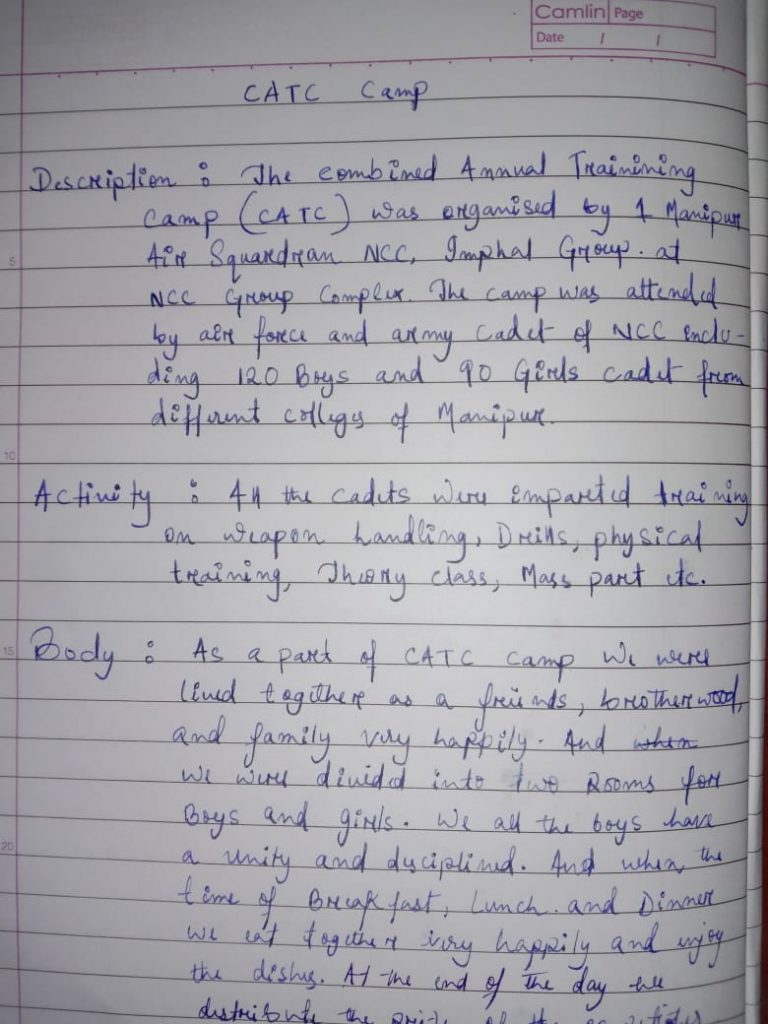 Camlin Page
Date / /
CATC Camp
Description : The combined Annual Trainining
Camp (CATC) was organised by 1 Manipur
5
Air Squardran NCC, Imphal Group. at
NCC Group Complex. The camp was attended
by air force and army cadet of NCC inclu-
ding 120 Boys and 90 Girls cadet from
different colleges of Manipur.
10
Activity : All the cadets were imparted training
on weapon handling, Drills, physical
training, Theory class, Mass part etc.
15
Body : As a part of CATC camp we were
lived together as a friends, brotherwood,
and family very happily. And when
we were divided into two rooms for
Boys and girls. We all the boys have
20
a unity and disciplined. And when the
time of Breakfast, Lunch. and Dinner
we eat together very happily and enjoy
the dishes. At the end of the day we
distribute the of the